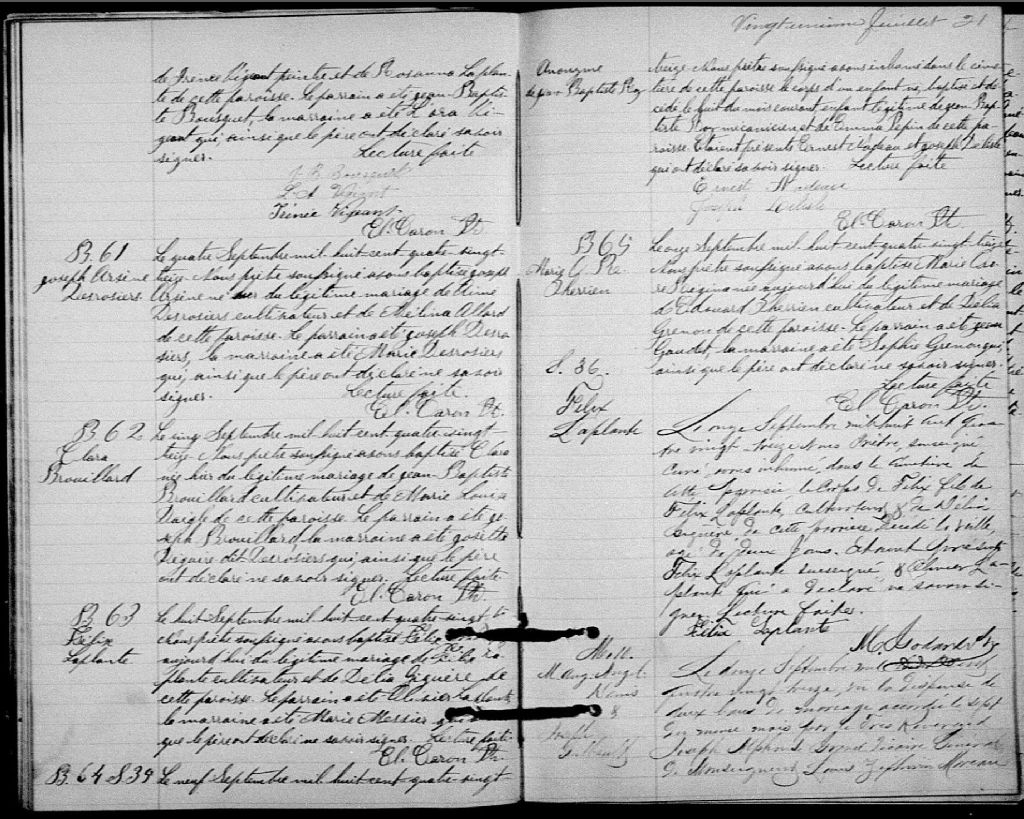 de Irenée Vigeant peintre et de Rosanna Laplan-
te de cette paroisse. Le parrain a été Jean-Baptis-
te Bousquet, la marraine a été Dora Vi-
geant qui, ainsi que le père ont déclaré savoir
signer. Lecture faite
J. B. Bousquet
Irénée Vigeant
El. Caron Pt.
B. 61
Joseph Arsène
Desrosiers
Le quatre Septembre mil huit cent quatre-vingt
treize Nous prêtre soussigné avons baptisé Joseph
Arsène né hier du légitime mariage de Aimé
Desrosiers cultivateur et de Melina Allard
de cette paroisse. Le parrain a été Joseph Desro
siers, la marraine a été Marie Desrosiers
qui, ainsi que le père ont déclaré ne savoir
signer. Lecture faite.
El. Caron Pt.
B 62
Clara
Brouillard
Le cinq Septembre mil huit cent quatre-vingt
treize Nous prêtre soussigné avons baptisé Clara
née hier du légitime mariage de Jean-Baptiste
Brouillard cultivateur et de Marie Louise
Daigle de cette paroisse. Le parrain a été Jo-
seph Brouillard, la marraine a été Josette
Deguire dit Desrosiers qui, ainsi que le père
ont déclaré ne savoir signer. Lecture faite
El. Caron Pt.
B 63
Félix
Laplante
Le huit Septembre mil huit cent quatre-vingt
Nous prêtre soussigné avons baptisé Félix
aujourd'hui du légitime mariage de Félix La
plante cultivateur et de Délia Giguère de
cette paroisse. Le parrain a été Olivier Laplante
la marraine a été Marie Messier
que le père ont déclaré ne savoir signer. Lecture faite
El. Caron Pt.
B. 64 S 34
Le neuf Septembre mil huit cent quatre-vingt
Vingtunième Juillet 21
Anonyme
de Jean Baptiste Roy
treize Nous prêtre soussigné avons inhumé dans le cime
tière de cette paroisse le corps d'un enfant né, baptisé et dé
cédé le huit du mois courant enfant légitime de Jean-Bap
tiste Roy mécanicien et de Emma Pepin de cette pa-
roisse. Etaient présents Ernest Nadeau et Joseph Delisle
qui ont déclaré savoir signer. Lecture faite
Ernest Nadeau
Joseph Delisle
El. Caron Pt.
B 65
Marie C. Re.
Therrien
Le onze Septembre mil huit cent quatre vingt treize
Nous prêtre soussigné avons baptisé Marie
Regina née aujourd'hui du légitime mariage
d'Edouard Therrien cultivateur et de Délia
Grenon de cette paroisse. Le parrain a été Jean
Gaudet, la marraine a été Sophie Grenon qui,
ainsi que le père ont déclaré ne savoir signer.
Lecture faite
El Caron Pt.
S. 36.
Félix
Laplante
Le onze Septembre mil huit cent qua-
tre vingt treize Nous Prêtre, soussigné
Curé avons inhumé, dans le Cimetière de
cette paroisse, le Corps de Félix fils de
Félix Laplante, cultivateur & de Délia
Giguère de cette paroisse, décédé la veille
agé de deux Jours. Etaient présents
Félix Laplante soussigné & Olivier La-
plante qui a déclaré ne savoir si-
gner. Lecture faite.
Félix Laplante
M. Godard Ptr
M. Ang. Angel.
Denis
&
Joseph
Le douze Septembre mil huit cent
quatre vingt treize, vu la dispense de
deux bans de mariage accordée le sept
du même mois par le Très Révérend
Joseph Alphonse Gravel Vicaire Général
de Monseigneur Louis Zéphirin Moreau